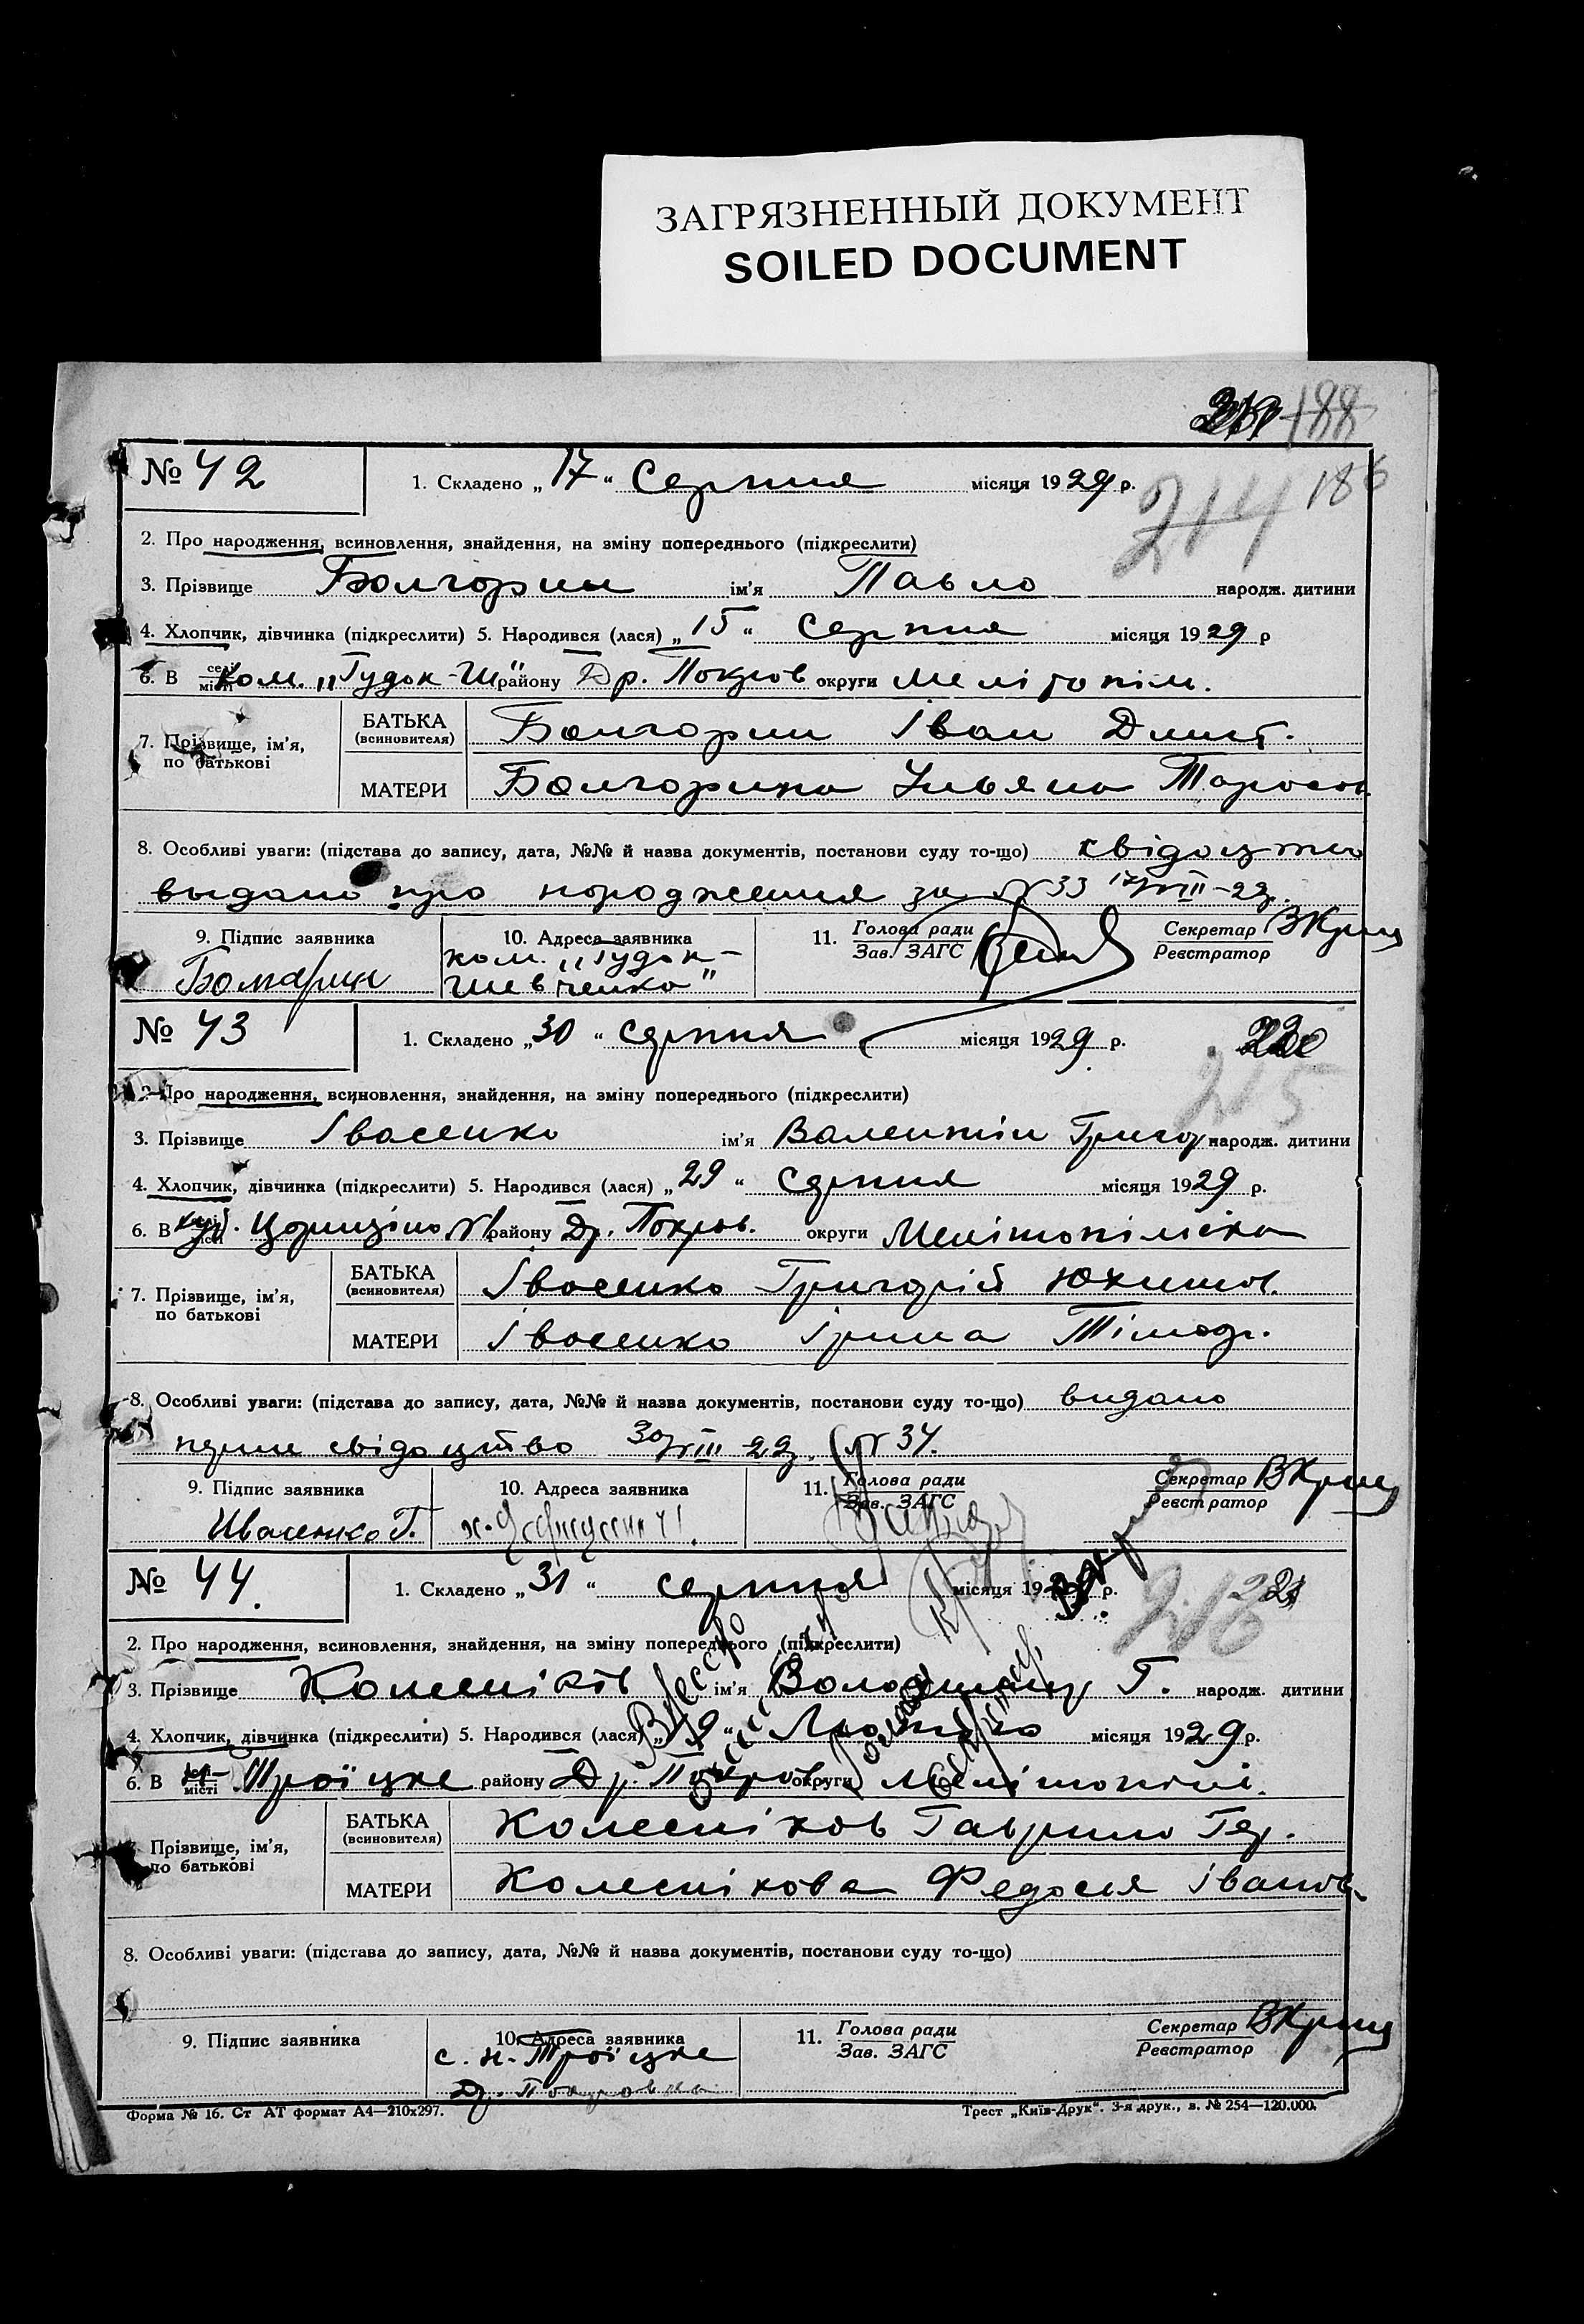 ЗАГРЯЗНЕННЫЙ ДОКУМЕНТ
SOILED DOCUMENT
188
186
214
№ 42
1. Складено „17“ Серпня місяця 1929 р.
2. Про народження, всиновлення, знайдення, на зміну попереднього (підкреслити)
3. Прізвище Болгорин ім'я Павло народж. дитини
4. Хлопчик, дівчинка (підкреслити) 5. Народився (лася) „15“ Серпня місяця 1929 р
6. В селі місті Ком. „Гудок-Ш“ району Др. Покров округи Мелітопіл.
7. Прізвище, ім'я, по батькові
БАТЬКА (всиновителя) Болгорин Іван Дмит.
МАТЕРИ Болгорина Ульяна Тарасов.
8. Особливі уваги: (підстава до запису, дата, №№ й назва документів, постанови суду то-що) свідоцтво
выдано про народження за № 33 17/VIII-29р.
9. Підпис заявника
10. Адреса заявника
ком. „Гудок-
Шевченко“
11. Голова ради
Зав. ЗАГС
Секретар
Реєстратор
№ 43
1. Складено „30“ серпня місяця 1929 р.
215
2. Про народження, всиновлення, знайдення, на зміну попереднього (підкреслити)
3. Прізвище Івасенко ім'я Валентін Григор народж. дитини
4. Хлопчик, дівчинка (підкреслити) 5. Народився (лася) „29“ серпня місяця 1929 р.
6. В району Др. Покров. округи Мелітопілська
7. Прізвище, ім'я, по батькові
БАТЬКА (всиновителя) Івасенко Григорій Юхимов.
МАТЕРИ Івасенко Ірина Тімоф.
8. Особливі уваги: (підстава до запису, дата, №№ й назва документів, постанови суду то-що) видано
перше свідоцтво 30/VIII 29р. № 34.
9. Підпис заявника
Ивасенко Г.
10. Адреса заявника
11. Голова ради
Зав. ЗАГС
Секретар
Реєстратор
№ 44.
1. Складено „31“ серпня місяця 1929 р.
216
2. Про народження, всиновлення, знайдення, на зміну попереднього (підкреслити)
3. Прізвище Колесніков ім'я Володимир Г. народж. дитини
4. Хлопчик, дівчинка (підкреслити) 5. Народився (лася) Лютого місяця 1929 р.
6. В місті Троїцке району Др. Покров. округи Мелітопіл.
Прізвище, ім'я, по батькові
БАТЬКА (всиновителя) Колесніков Гаврило Гер.
МАТЕРИ Колеснікова Федосія Іванов.
8. Особливі уваги: (підстава до запису, дата, №№ й назва документів, постанови суду то-що)
9. Підпис заявника
10. Адреса заявника
с. Н.-Троїцке
Др. Покровка
11. Голова ради
Зав. ЗАГС
Секретар
Реєстратор
Форма № 16. Ст АТ формат А4—210х297.
Трест „Київ-Друк“. 3-я друк., з. № 254—120.000.